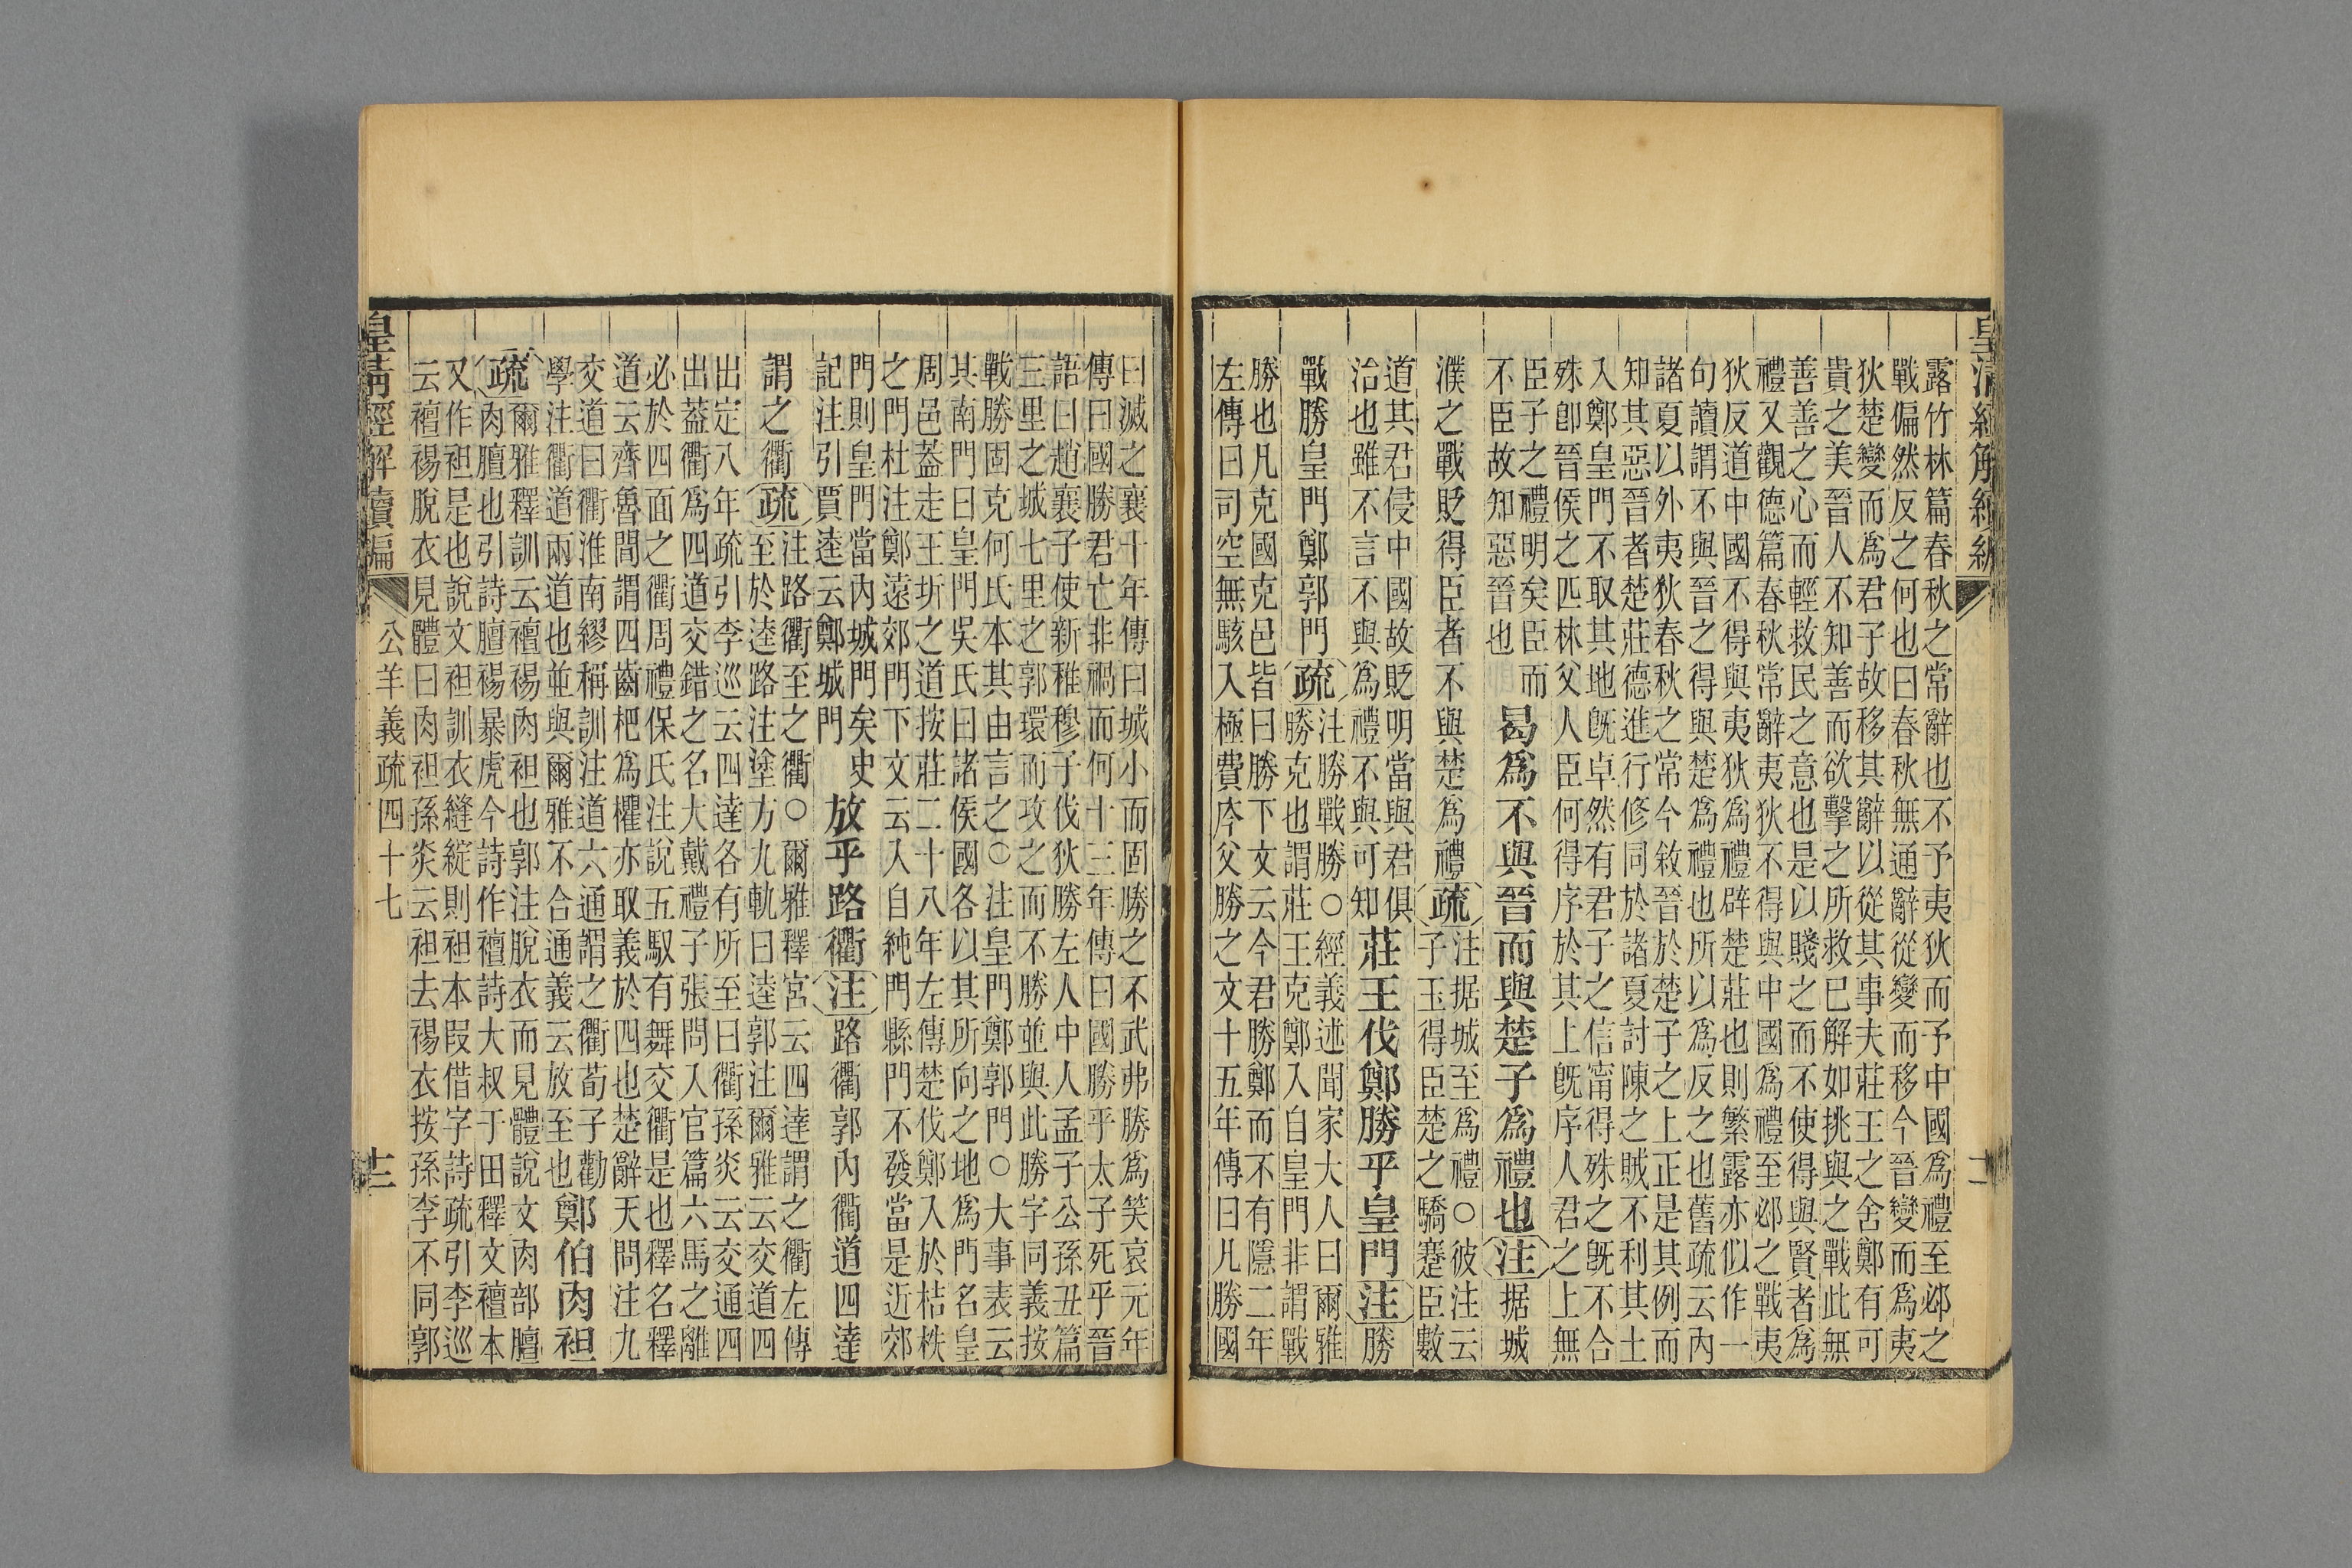 露竹林篇春秋之常辭也不予夷狄而予中國爲禮至邲之
戰偏然反之何也曰春秋無通辭從變而移今晉變而爲夷
狄楚變而爲君子故移其辭以從其事夫莊王之舍鄭有可
貴之美晉人不知善而欲擊之所救已解如挑與之戰此無
善善之心而輕救民之意也是以賤之而不使得與賢者爲
禮又觀德篇春秋常辭夷狄不得與中國爲禮至邲之戰夷
狄反道中國不得與夷狄爲禮辟楚莊也則繁露亦似作一
句讀謂不與晉之得與楚爲禮也所以爲反之也舊疏云內
諸夏以外夷狄春秋之常今敘晉於楚子之上正是其例而
知其惡晉者楚莊德進行修同於諸夏討陳之賊不利其土
入鄭皇門不取其地旣卓然有君子之信甯得殊之旣不合
殊卽晉侯之匹林父人臣何得序於其上旣序人君之上無
臣子之禮明矣臣而
不臣故知惡晉也
曷爲不與晉而與楚子爲禮也注据城
濮之戰貶得臣者不與楚爲禮疏
注据城至爲禮○彼注云
子玉得臣楚之驕蹇臣數
道其君侵中國故貶明當與君俱
治也雖不言不與爲禮不與可知
莊王伐鄭勝乎皇門注勝
戰勝皇門鄭郭門疏
注勝戰勝○經義述聞家大人曰爾雅
勝克也謂莊王克鄭入自皇門非謂戰
勝也凡克國克邑皆曰勝下文云今君勝鄭而不有隱二年
左傳曰司空無駭入極費庈父勝之文十五年傳曰凡勝國
曰滅之襄十年傳曰城小而固勝之不武弗勝爲笑哀元年
傳曰國勝君亡非禍而何十三年傳曰國勝乎太子死乎晉
語曰趙襄子使新稚穆子伐狄勝左人中人孟子公孫丑篇
三里之城七里之郭環而攻之而不勝並與此勝字同義按
戰勝固克何氏本其由言之○注皇門鄭郭門○大事表云
其南門曰皇門吳氏曰諸侯國各以其所向之地爲門名皇
周邑蓋走王圻之道按莊二十八年左傳楚伐鄭入於桔柣
之門杜注鄭遠郊門下文云入自純門縣門不發當是近郊
門則皇門當內城門矣史
記注引賈逵云鄭城門
放乎路衢注路衢郭內衢道四達
謂之衢疏
注路衢至之衢○爾雅釋宮云四達謂之衢左傳
至於逵路注塗方九軌曰逵郭注爾雅云交道四
出定八年疏引李巡云四達各有所至曰衢孫炎云交通四
出蓋衢爲四道交錯之名大戴禮子張問入官篇六馬之離
必於四面之衢周禮保氏注說五馭有舞交衢是也釋名釋
道云齊魯閒謂四齒杷爲欋亦取義於四也楚辭天問注九
交道曰衢淮南繆稱訓注道六通謂之衢荀子勸
學注衢道兩道也並與爾雅不合通義云放至也
鄭伯肉袒
疏
爾雅釋訓云襢裼肉袒也郭注脫衣而見體說文肉部膻
肉膻也引詩膻裼暴虎今詩作襢詩大叔于田釋文襢本
又作袒是也說文袒訓衣縫綻則袒本叚借字詩疏引李巡
云襢裼脫衣見體曰肉袒孫炎云袒去裼衣按孫李不同郭
皇清經解續編 公羊義疏四十七